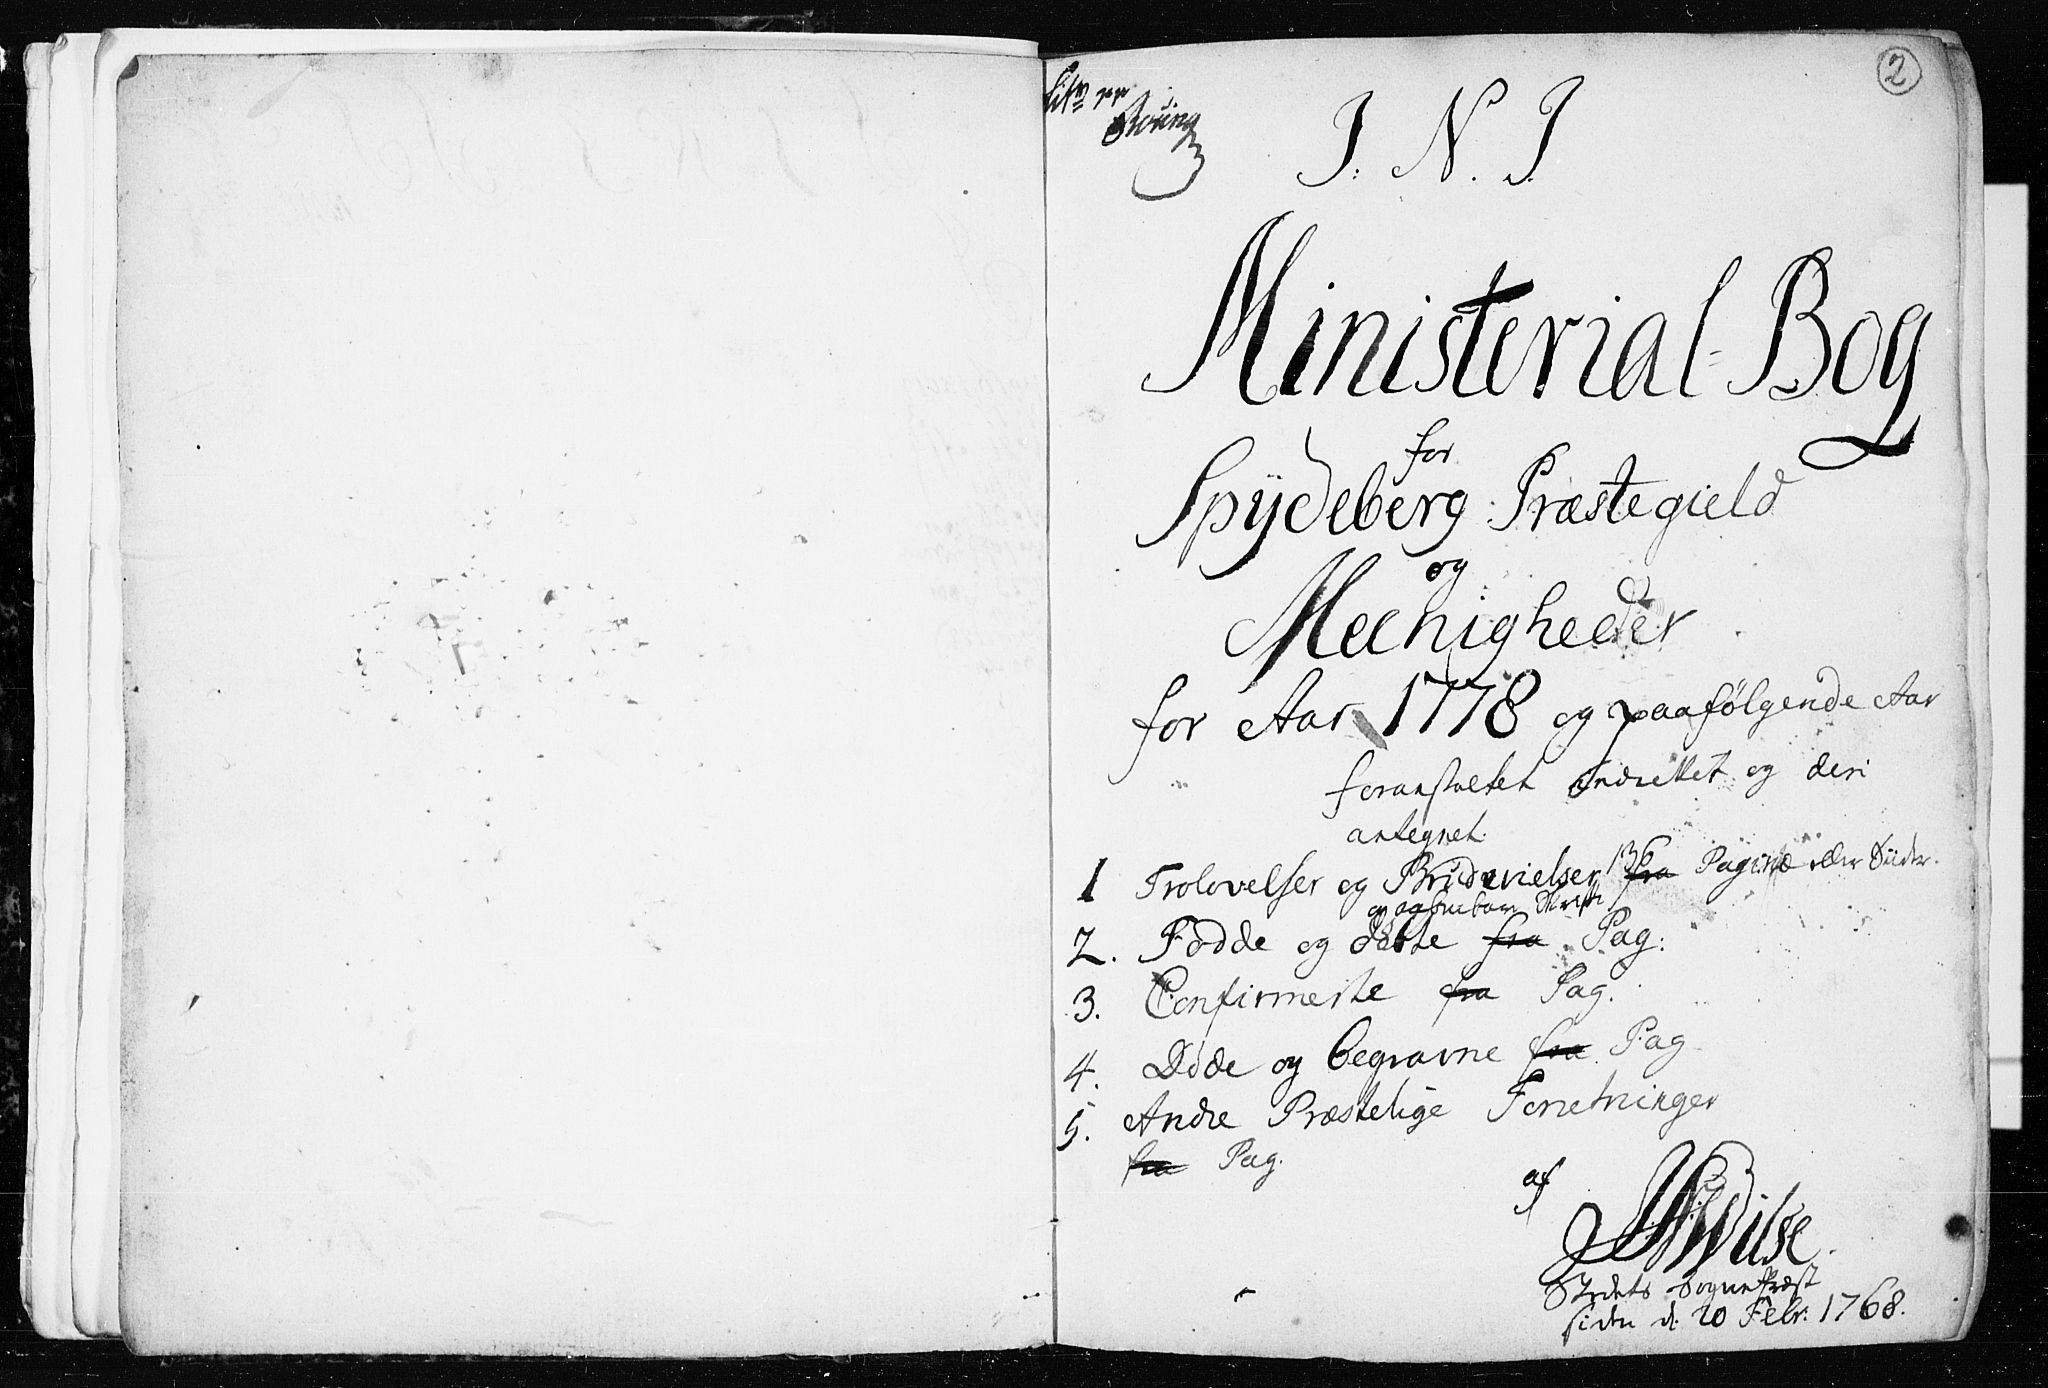 2
I. N. J.
Ministerial-Bog
for
Spÿdeberg Præstegield
og
Meenigheder
for Aar 1778 og paafølgende Aar
foranstaltet indrettet og deri
antegnet
1 Trolovelser og Brudevielser 136 fra Paginæ eller Siider.
og aabenbare Skrifte
2. Fødde og døbte fra Pag:
3. Confirmerte fra Pag.
4. Døde og begravne fra Pag
5. Andre Præstelige Forretninger
fra Pag.
af
JNWilse
Stedets Sogne Præst
siden d. 20 Febr: 1768.